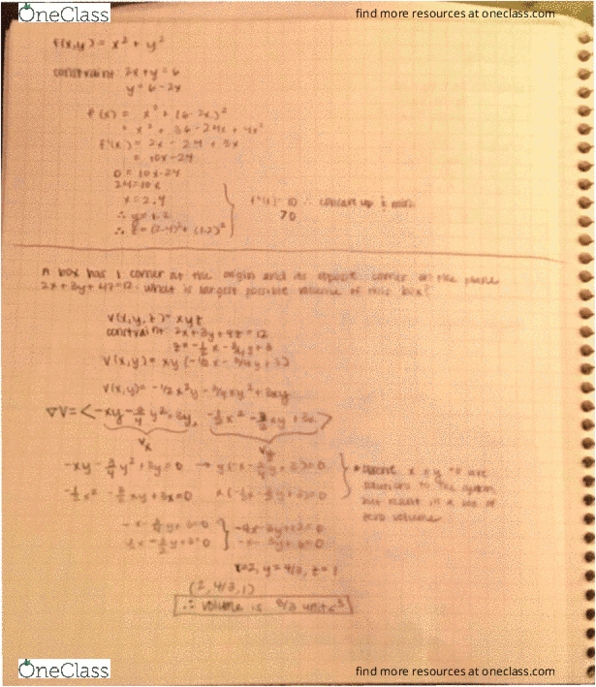 OneClass
find more resources at oneclass.com
f(x,y) = x² + y²
constraint: 2x+y=6
y=6-2x
f(x) = x² + (6-2x)²
= x² + 36-24x + 4x²
f'(x) = 2x - 24 + 8x
= 10x-24
0=10x-24
24=10x
x=2.4
∴ y=1.2
∴ f=(2.4)²+(1.2)²
f''(x)=10 ∴ concave up & min
>0
A box has 1 corner at the origin and its opposite corner on the plane
2x+3y+4z=12. What is largest possible volume of this box?
V(x,y,z)=xyz
constraint: 2x+3y+4z=12
z=-1/2x-3/4y+3
V(x,y)=xy(-1/2x-3/4y+3)
V(x,y)=-1/2x²y-3/4xy²+3xy
∇V=<-xy-3/4y²+3y, -1/2x²-3/2xy+3x>
Vx Vy
-xy-3/4y²+3y=0 → y(-x-3/4y+3)=0
-1/2x²-3/2xy+3x=0 x(-1/2x-3/2y+3)=0
x & y =0 are
solutions to the system
but result in a box of
zero volume
-x-3/4y+3=0
-1/2x-3/2y+3=0
-x-3y+6=0
x=2, y=4/3, z=1
(2,4/3,1)
∴ volume is 8/3 units³
OneClass
find more resources at oneclass.com